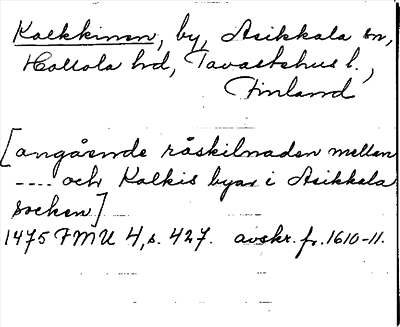 Kalkkinen, by, Asikkala sn,
Hollola hd, Tavastehus l.,
Finland
[angående råskilnaden mellan
---- och Kalkis byar i Asikkala
socken]
1475 FMU 4, s. 427. avskr. fr. 1610-11.